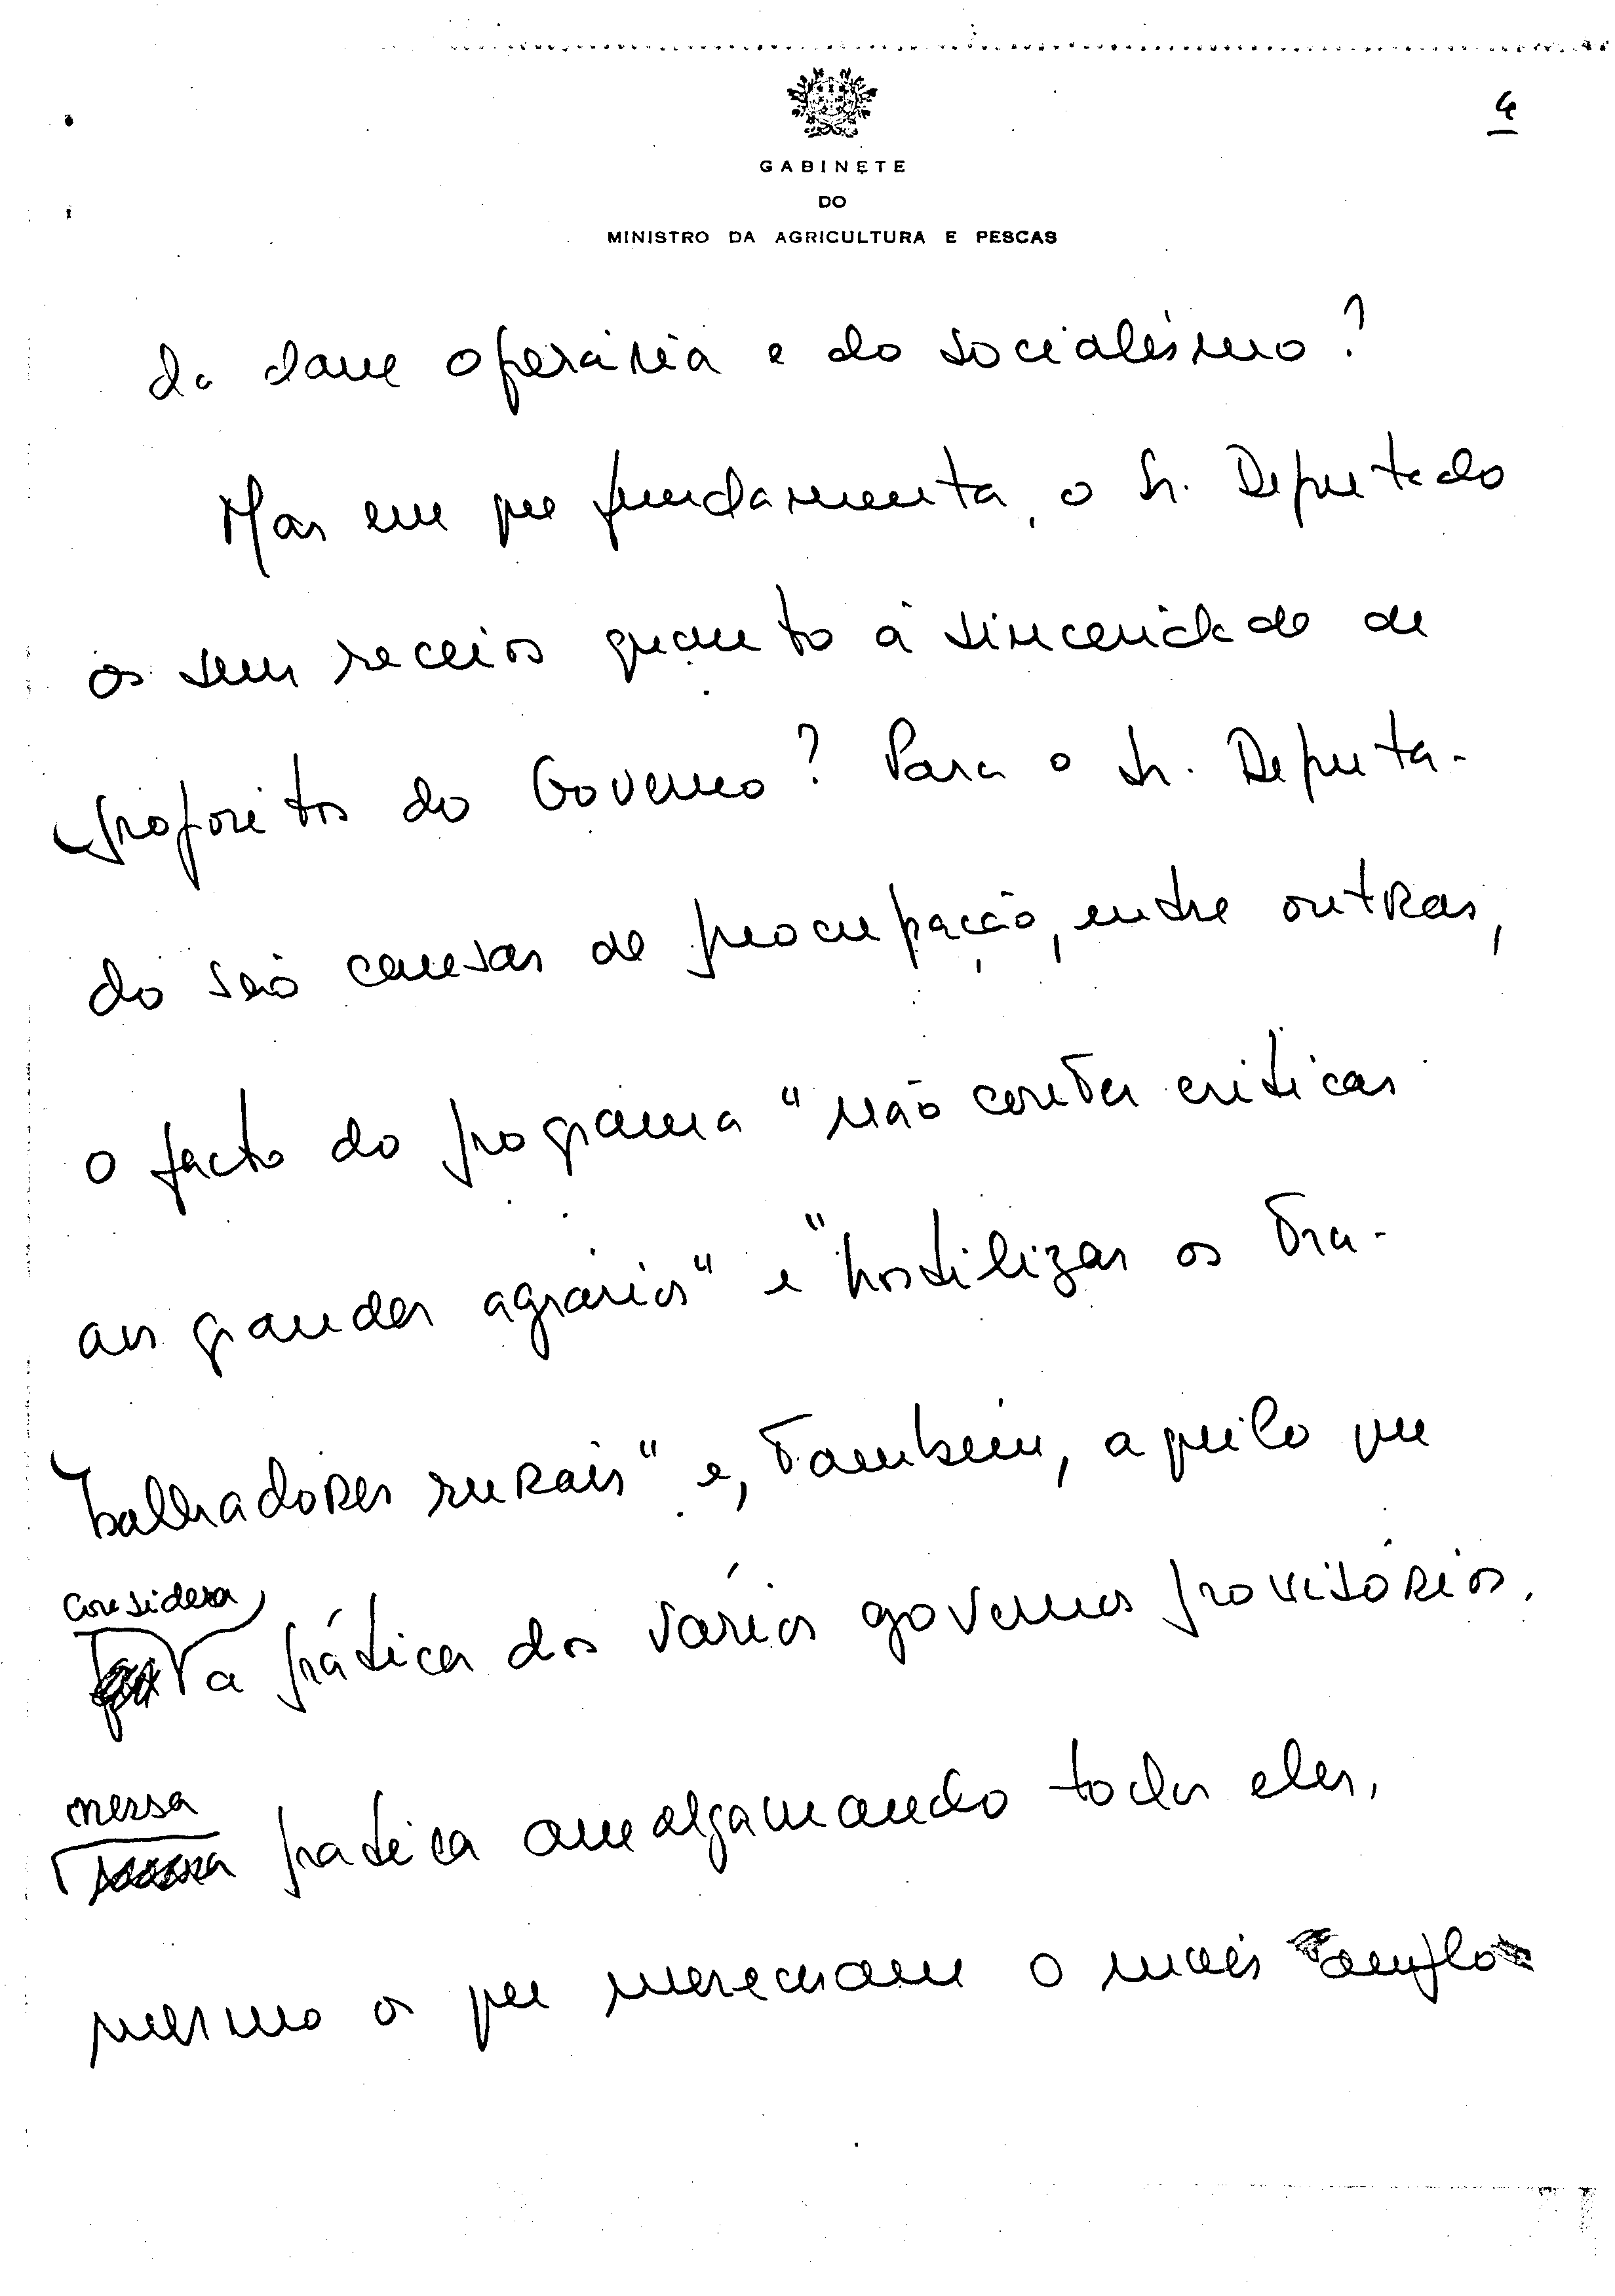 4
GABINETE
DO
MINISTRO DA AGRICULTURA E PESCAS
da classe operária e do socialismo?
Mas em que fundamenta, o Sr. Deputado
os seus receios quanto à sinceridade de
propósitos do Governo? Para o Sr. Deputa-
do são causas de preocupação, entre outras,
o facto do programa "não conter críticas
aos grandes agrários" e "hostilizar os tra-
balhadores rurais" e, também, aquilo que
considera
a prática dos vários governos provisórios,
nessa
prática amalgamando todos eles,
mesmo os que mereceram o mais amplo